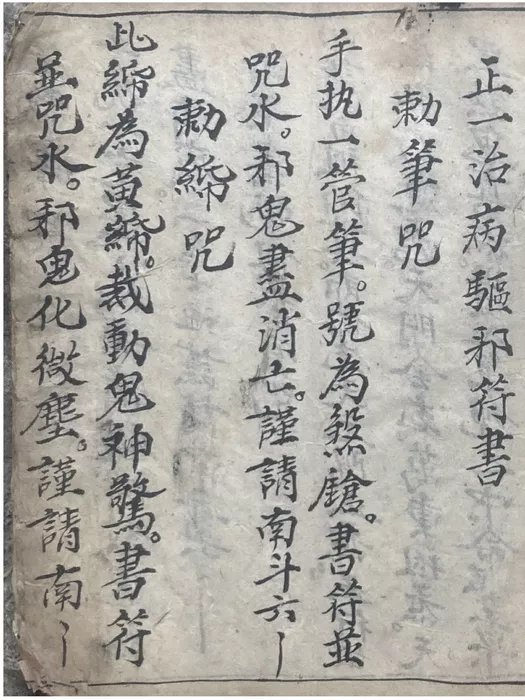 正一治病驅邪符書
勅筆咒
手执一管筆。號為煞鎗。書符並
咒水。邪鬼盡消亡。謹請南斗六〡
勅紙咒
此紙為黃紙。裁動鬼神驚。書符
並咒水。邪鬼化微塵。謹請南〡